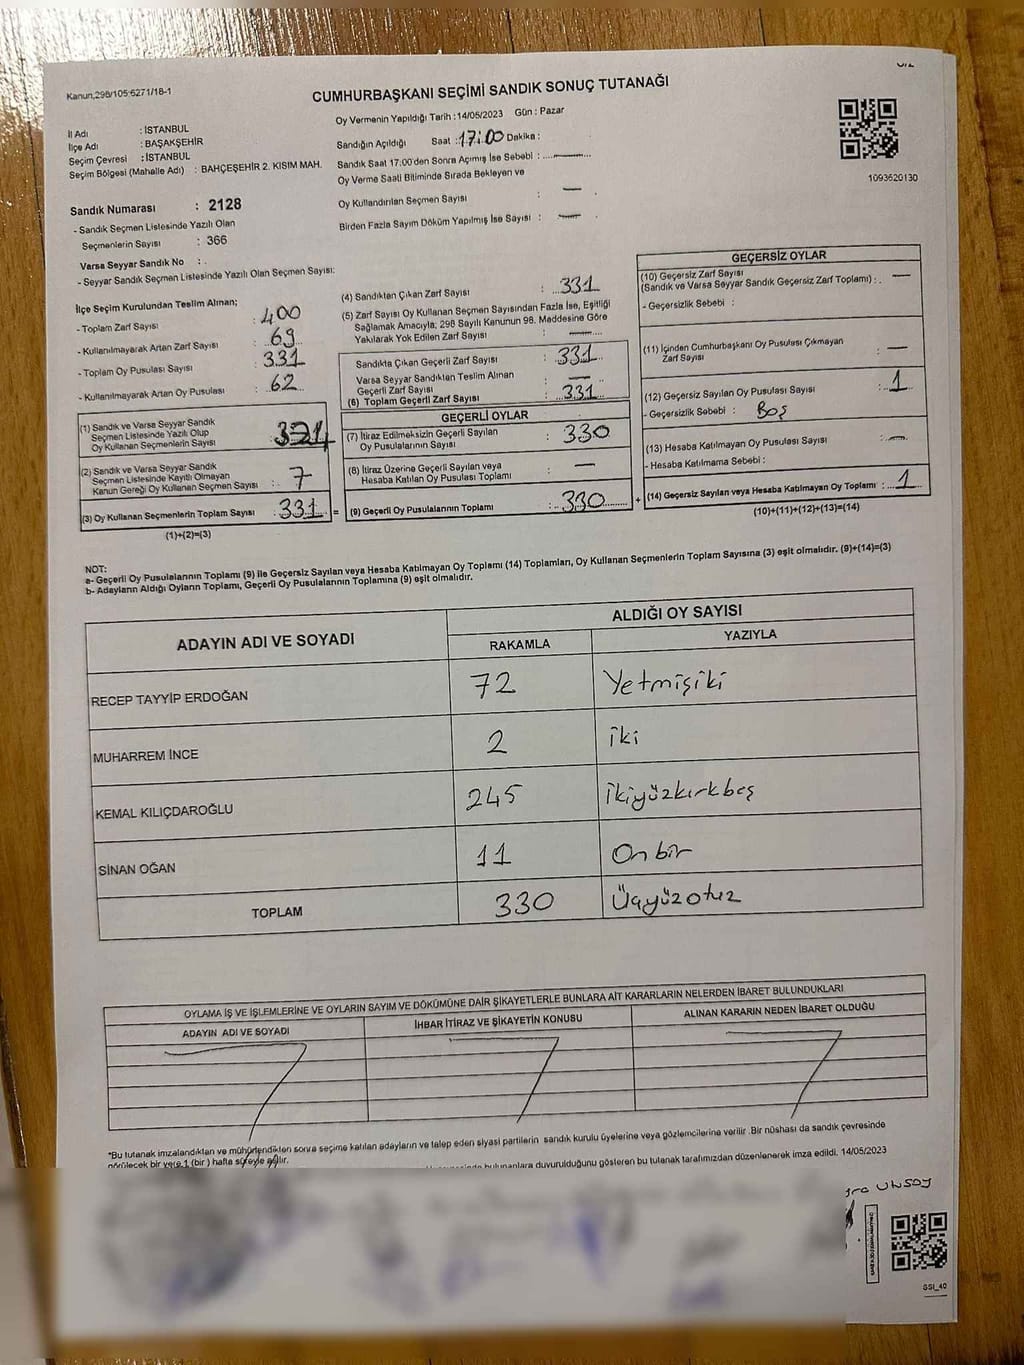 Kanun,298/105;6271/18-1
CUMHURBAŞKANI SEÇİMİ SANDIK SONUÇ TUTANAĞI
İl Adı : İSTANBUL
İlçe Adı : BAŞAKŞEHİR
Seçim Çevresi : İSTANBUL
Seçim Bölgesi (Mahalle Adı) : BAHÇEŞEHİR 2. KISIM MAH.
Sandık Numarası : 2128
- Sandık Seçmen Listesinde Yazılı Olan
Seçmenlerin Sayısı : 366
Varsa Seyyar Sandık No :
- Seyyar Sandık Seçmen Listesinde Yazılı Olan Seçmen Sayısı:
Oy Vermenin Yapıldığı Tarih :14/05/2023 Gün : Pazar
Sandığın Açıldığı Saat : 17:00 Dakika :
Sandık Saat 17:00'den Sonra Açımış İse Sebebi : —
Oy Verme Saati Bitiminde Sırada Bekleyen ve
Oy Kullandırılan Seçmen Sayısı : —
Birden Fazla Sayım Döküm Yapılmış İse Sayısı : —
1093620130
İlçe Seçim Kurulundan Teslim Alınan;
- Toplam Zarf Sayısı : 400
- Kullanılmayarak Artan Zarf Sayısı : 69
- Toplam Oy Pusulası Sayısı : 331
- Kullanılmayarak Artan Oy Pusulası : 62
(1) Sandık ve Varsa Seyyar Sandık
Seçmen Listesinde Yazılı Olup
Oy Kullanan Seçmenlerin Sayısı : 324
(2) Sandık ve Varsa Seyyar Sandık
Seçmen Listesinde Kayıtlı Olmayan
Kanun Gereği Oy Kullanan Seçmen Sayısı : 7
(3) Oy Kullanan Seçmenlerin Toplam Sayısı : 331 =
(1)+(2)=(3)
(4) Sandıktan Çıkan Zarf Sayısı : 331
(5) Zarf Sayısı Oy Kullanan Seçmen Sayısından Fazla İse, Eşitliği
Sağlamak Amacıyla, 298 Sayılı Kanunun 98. Maddesine Göre
Yakılarak Yok Edilen Zarf Sayısı : —
Sandıkta Çıkan Geçerli Zarf Sayısı : 331
Varsa Seyyar Sandıktan Teslim Alınan
Geçerli Zarf Sayısı : —
(6) Toplam Geçerli Zarf Sayısı : 331
GEÇERLİ OYLAR
(7) İtiraz Edilmeksizin Geçerli Sayılan
Oy Pusulalarının Sayısı : 330
(8) İtiraz Üzerine Geçerli Sayılan veya
Hesaba Katılan Oy Pusulası Toplamı : —
(9) Geçerli Oy Pusulalarının Toplamı : 330 +
GEÇERSİZ OYLAR
(10) Geçersiz Zarf Sayısı
(Sandık ve Varsa Seyyar Sandık Geçersiz Zarf Toplamı) : —
- Geçersizlik Sebebi :
(11) İçinden Cumhurbaşkanı Oy Pusulası Çıkmayan
Zarf Sayısı : —
(12) Geçersiz Sayılan Oy Pusulası Sayısı : 1
- Geçersizlik Sebebi : Boş
(13) Hesaba Katılmayan Oy Pusulası Sayısı : —
- Hesaba Katılmama Sebebi :
(14) Geçersiz Sayılan veya Hesaba Katılmayan Oy Toplamı : 1
(10)+(11)+(12)+(13)=(14)
NOT:
a- Geçerli Oy Pusulalarının Toplamı (9) ile Geçersiz Sayılan veya Hesaba Katılmayan Oy Toplamı (14) Toplamları, Oy Kullanan Seçmenlerin Toplam Sayısına (3) eşit olmalıdır. (9)+(14)=(3)
b- Adayların Aldığı Oyların Toplamı, Geçerli Oy Pusulalarının Toplamına (9) eşit olmalıdır.
ADAYIN ADI VE SOYADI ALDIĞI OY SAYISI
RAKAMLA YAZIYLA
RECEP TAYYİP ERDOĞAN 72 Yetmişiki
MUHARREM İNCE 2 iki
KEMAL KILIÇDAROĞLU 245 ikiyüzkırkbeş
SİNAN OĞAN 11 Onbir
TOPLAM 330 Üçyüzotuz
OYLAMA İŞ VE İŞLEMLERİNE VE OYLARIN SAYIM VE DÖKÜMÜNE DAİR ŞİKAYETLERLE BUNLARA AİT KARARLARIN NELERDEN İBARET BULUNDUKLARI
ADAYIN ADI VE SOYADI İHBAR İTİRAZ VE ŞİKAYETİN KONUSU ALINAN KARARIN NEDEN İBARET OLDUĞU
*Bu tutanak imzalandıktan ve mühürlendikten sonra seçime katılan adayların ve talep eden siyasi partilerin sandık kurulu üyelerine veya gözlemcilerine verilir .Bir nüshası da sandık çevresinde
görülecek bir yere 1 (bir ) hafta süreyle asılır.
bulunanlara duyurulduğunu gösteren bu tutanak tarafımızdan düzenlenerek imza edildi. 14/05/2023
SSI_40